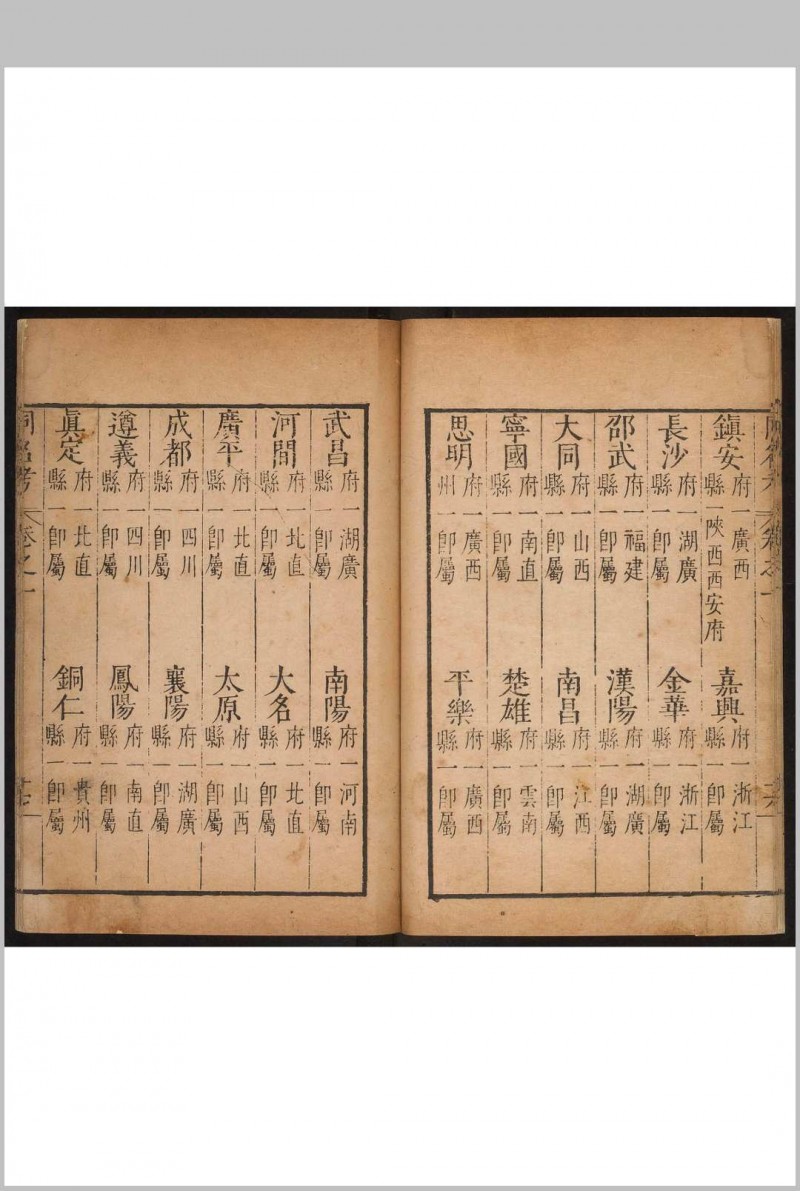 鎮安 府一廣西 縣一陝西西安府 嘉興 府一浙江 縣一卽屬
長沙 府一湖廣 縣一卽屬 金華 府一浙江 縣一卽屬
邵武 府一福建 縣一卽屬 漢陽 府一湖廣 縣一卽屬
大同 府一山西 縣一卽屬 南昌 府一江西 縣一卽屬
寧國 府一南直 縣一卽屬 楚雄 府一雲南 縣一卽屬
思明 府一廣西 州一卽屬 平樂 府一廣西 縣一卽屬
武昌 府一湖廣 縣一卽屬 南陽 府一河南 縣一卽屬
河間 府一北直 縣一卽屬 大名 府一北直 縣一卽屬
廣平 府一北直 縣一卽屬 太原 府一山西 縣一卽屬
成都 府一四川 縣一卽屬 襄陽 府一湖廣 縣一卽屬
遵義 府一四川 縣一卽屬 鳳陽 府一南直 縣一卽屬
眞定 府一北直 縣一卽屬 銅仁 府一貴州 縣一卽屬
同名考 卷之一